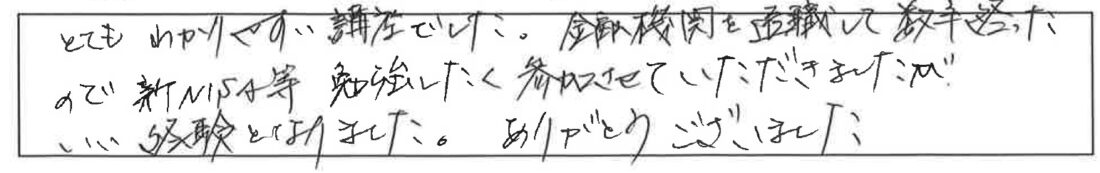 とてもわかりやすい講座でした。金融機関を退職して数年経った
ので新NISA等勉強したく参加させていただきましたが
いい経験となりました。ありがとうございました